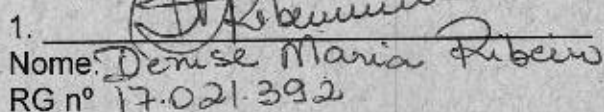 1.
Nome: Denise Maria Ribeiro
RG nº 17.021.392